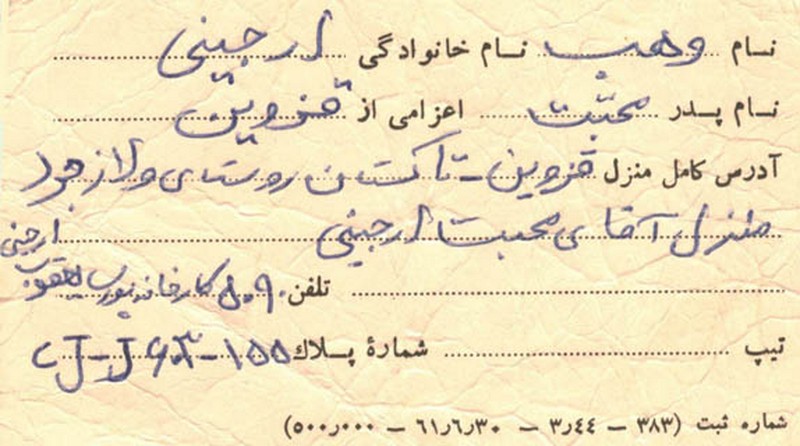 نام وهب نام خانوادگی ارجینی
نام پدر محبت اعزامی از قزوین
آدرس کامل منزل قزوین - تاکستان روستای ولازجرد
منزل آقای محبت ارجینی
تلفن ۸۰۹۰ کارخانه پوریعقوب ارجینی
تیپ شمارهٔ پلاك
شماره ثبت (۳۸۳ – ۳٫۴۴ – ۶۱٫۶٫۳۰ – ۵۰۰٫۰۰۰)